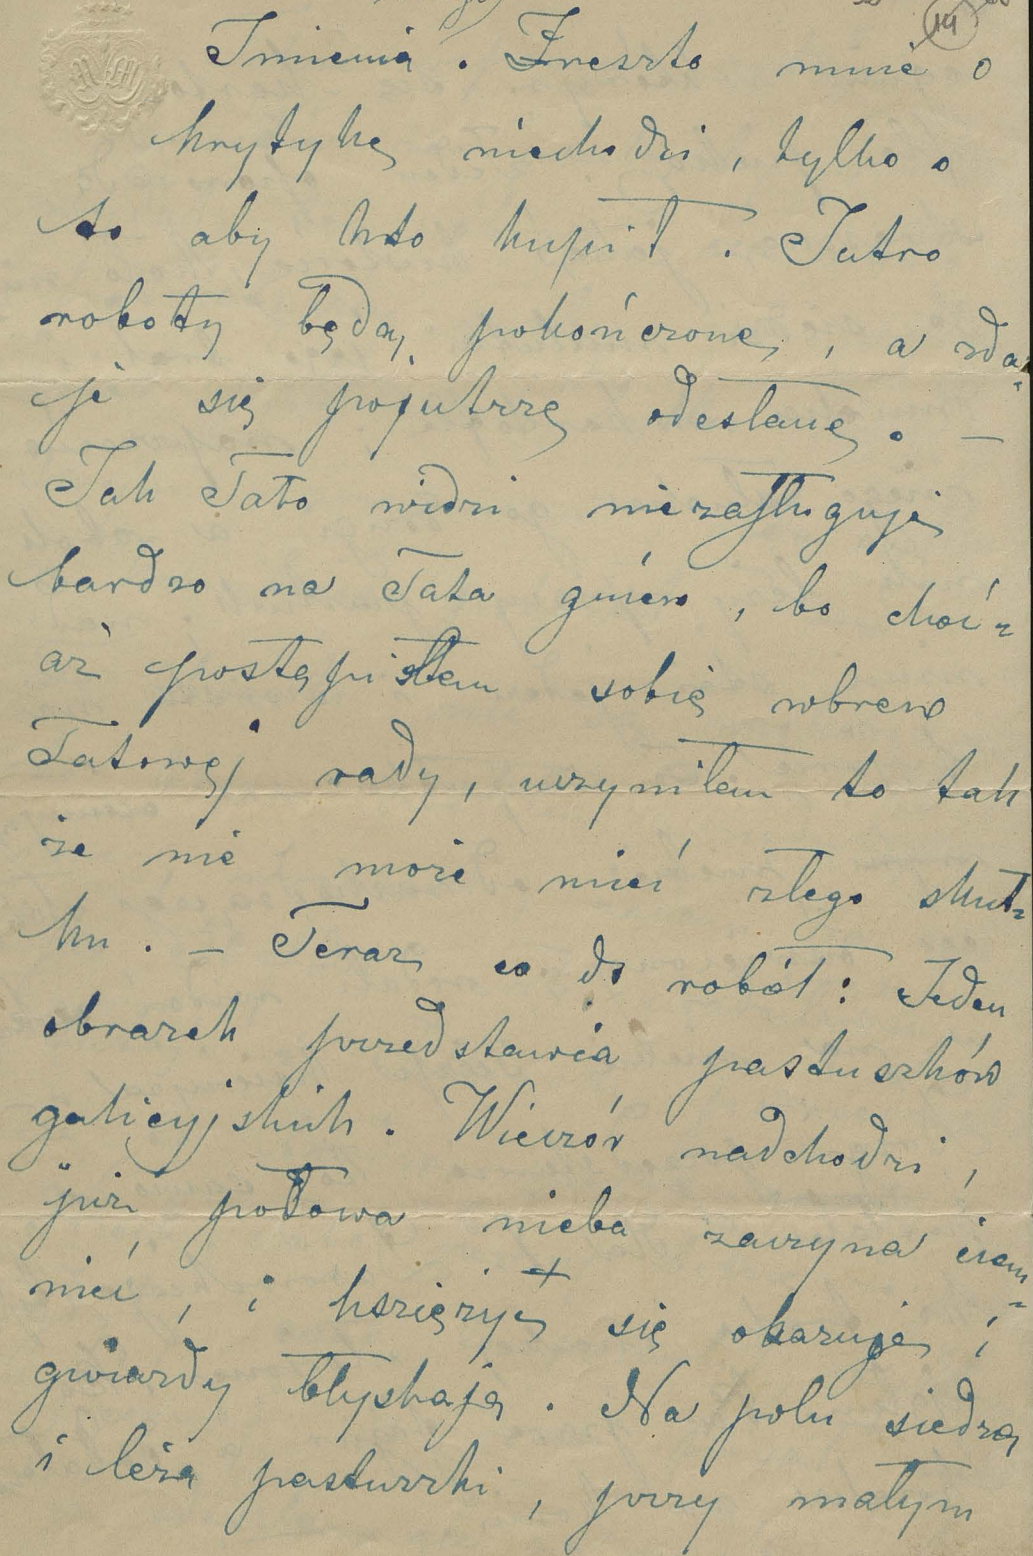 14
Imienia. Zresztą mnie o
krytykę niechodzi, tylko o
to aby kto kupił. Jutro
roboty będą pokończone, a zda-
je się pojutrze odesłane. —
Jak Tato widzi niezasługuję
bardzo na Tata gniew, bo choci-
aż postąpiłem sobie wbrew
Tatowej rady, uczyniłem to tak
że nie może mieć złego skut-
ku. — Teraz co do robót: Jeden
obrazek przedstawia pastuszków
galicyjskich. Wieczór nadchodzi,
już połowa nieba zaczyna ciem-
nieć, i księżyc się okazuje i
gwiazdy błyskają. Na polu siedzą
i leżą pastuszki, przy małym